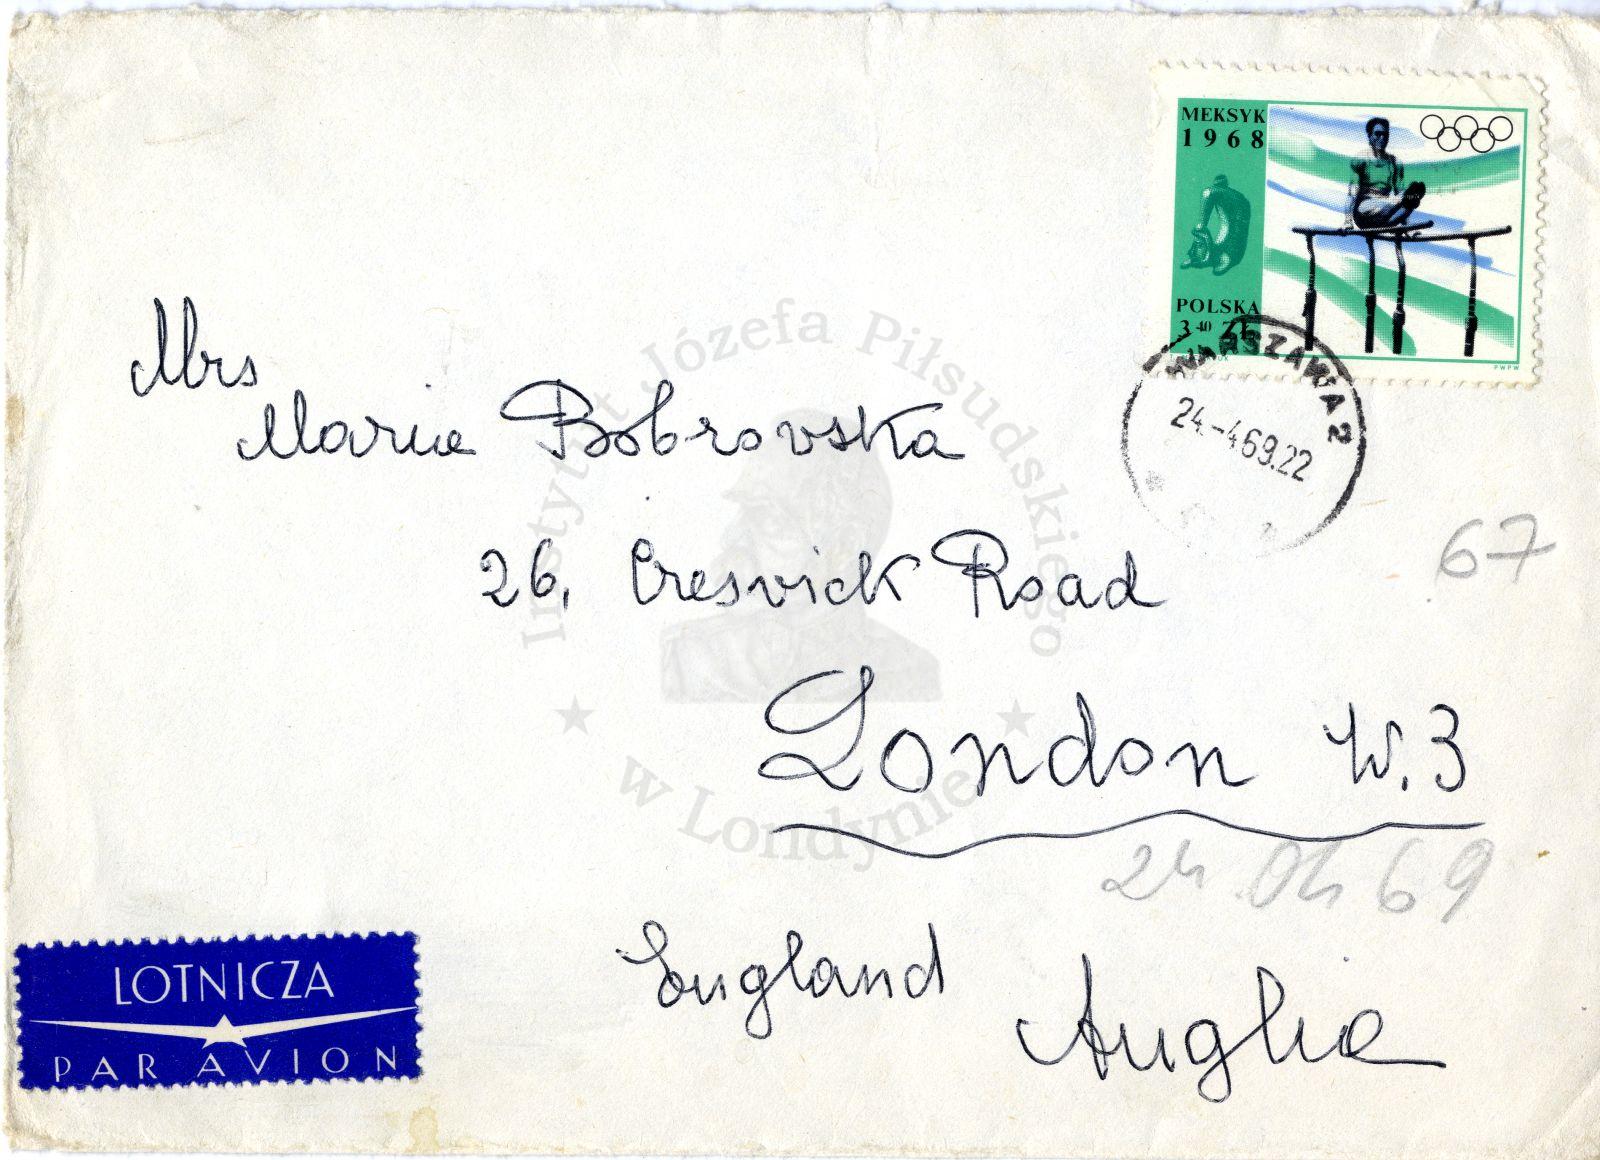 MEKSYK
1968
POLSKA
3 40 ZŁ
PWPW
WARSZAWA 2
24.-4.69.22
Mrs
Maria Bobrovska
26, Cresvick Road
London W.3
England
Anglia
67
24.04 69
LOTNICZA
PAR AVION
Instytut Józefa Piłsudskiego
w Londynie